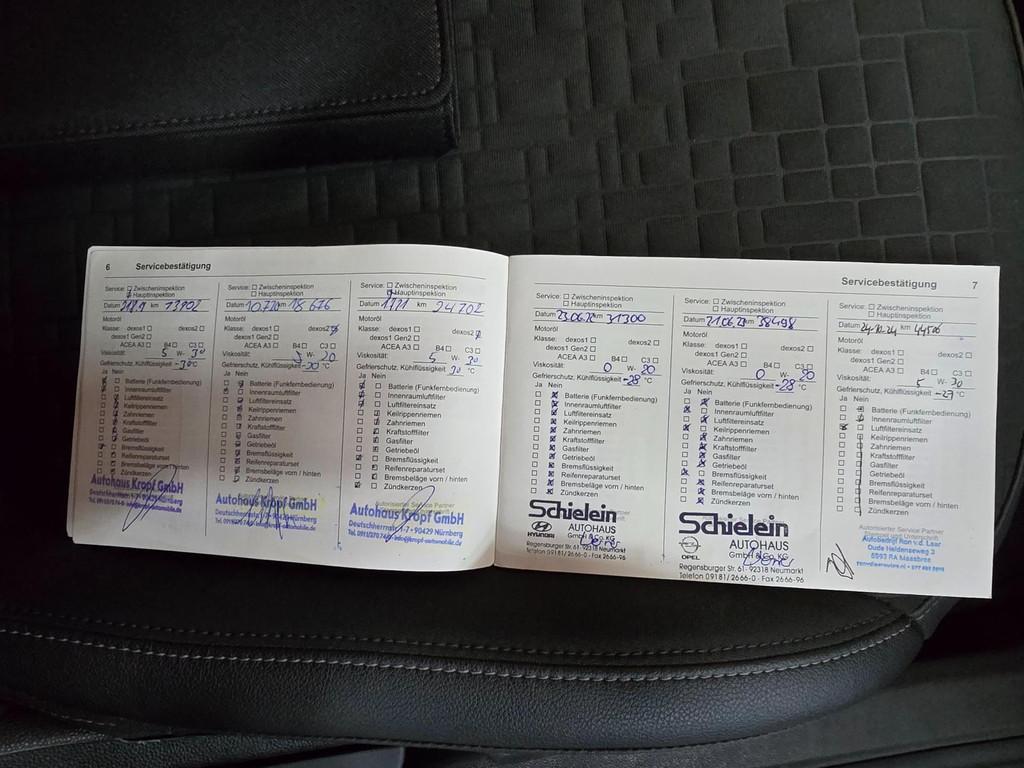 6 Servicebestätigung
Service: ☐ Zwischeninspektion
Hauptinspektion
Datum km 23802
Motoröl
Klasse: dexos1 ☐ dexos2 ☐
dexos1 Gen2 ☐
ACEA A3 ☐ B4 ☐ C3 ☐
Viskosität: 5 W- 30
Gefrierschutz, Kühlflüssigkeit -30 °C
Ja Nein
Batterie (Funkfernbedienung)
Innenraumluftfilter
Luftfiltereinsatz
Keilrippenriemen
Zahnriemen
Kraftstofffilter
Gasfilter
Getriebeöl
Bremsflüssigkeit
Reifenreparaturset
Bremsbeläge vorn / hinten
Zündkerzen
Autohaus Kropf GmbH
Deutschherrnstr. 1-7 • 90429 Nürnberg
Service: ☐ Zwischeninspektion
☐ Hauptinspektion
Datum km 18 676
Motoröl
Klasse: dexos1 ☐ dexos2
dexos1 Gen2 ☐
ACEA A3 ☐ B4 ☐ C3 ☐
Viskosität: 5 W- 20
Gefrierschutz, Kühlflüssigkeit -30 °C
Ja Nein
Batterie (Funkfernbedienung)
Innenraumluftfilter
Luftfiltereinsatz
Keilrippenriemen
Zahnriemen
Kraftstofffilter
Gasfilter
Getriebeöl
Bremsflüssigkeit
Reifenreparaturset
Bremsbeläge vorn / hinten
Zündkerzen
Autohaus Kropf GmbH
Deutschherrnstr. 1-7 • 90429 Nürnberg
Service: ☐ Zwischeninspektion
Hauptinspektion
Datum km 24702
Motoröl
Klasse: dexos1 ☐ dexos2
dexos1 Gen2 ☐
ACEA A3 ☐ B4 ☐ C3 ☐
Viskosität: 5 W- 30
Gefrierschutz, Kühlflüssigkeit 30 °C
Ja Nein
Batterie (Funkfernbedienung)
Innenraumluftfilter
Luftfiltereinsatz
Keilrippenriemen
Zahnriemen
Kraftstofffilter
Gasfilter
Getriebeöl
Bremsflüssigkeit
Reifenreparaturset
Bremsbeläge vorn / hinten
Zündkerzen
Autohaus Kropf GmbH
Deutschherrnstr. 1-7 • 90429 Nürnberg
Tel. 0911/270 74-0 • info@kropf-automobile.de
Servicebestätigung 7
Service: ☐ Zwischeninspektion
☐ Hauptinspektion
Datum km 31300
Motoröl
Klasse: dexos1 ☐ dexos2 ☐
dexos1 Gen2 ☐
ACEA A3 ☐ B4 ☐ C3 ☐
Viskosität: 0 W- 20
Gefrierschutz, Kühlflüssigkeit -28 °C
Ja Nein
Batterie (Funkfernbedienung)
Innenraumluftfilter
Luftfiltereinsatz
Keilrippenriemen
Zahnriemen
Kraftstofffilter
Gasfilter
Getriebeöl
Bremsflüssigkeit
Reifenreparaturset
Bremsbeläge vorn / hinten
Zündkerzen
Schielein
HYUNDAI AUTOHAUS
GmbH & Co. KG
Regensburger Str. 61 · 92318 Neumarkt
Telefon 09181/2666-0 · Fax 2666-96
Service: ☐ Zwischeninspektion
☐ Hauptinspektion
Datum km 38498
Motoröl
Klasse: dexos1 ☐ dexos2 ☐
dexos1 Gen2 ☐
ACEA A3 ☐ B4 ☐ C3 ☐
Viskosität: 0 W- 20
Gefrierschutz, Kühlflüssigkeit -28 °C
Ja Nein
Batterie (Funkfernbedienung)
Innenraumluftfilter
Luftfiltereinsatz
Keilrippenriemen
Zahnriemen
Kraftstofffilter
Gasfilter
Getriebeöl
Bremsflüssigkeit
Reifenreparaturset
Bremsbeläge vorn / hinten
Zündkerzen
Schielein
OPEL AUTOHAUS
GmbH & Co. KG
Regensburger Str. 61 · 92318 Neumarkt
Telefon 09181/2666-0 · Fax 2666-96
Service: ☐ Zwischeninspektion
☐ Hauptinspektion
Datum 24-10-24 km 44506
Motoröl
Klasse: dexos1 ☐ dexos2 ☐
dexos1 Gen2 ☐
ACEA A3 ☐ B4 ☐ C3 ☐
Viskosität: 5 W- 30
Gefrierschutz, Kühlflüssigkeit -27 °C
Ja Nein
Batterie (Funkfernbedienung)
Innenraumluftfilter
Luftfiltereinsatz
Keilrippenriemen
Zahnriemen
Kraftstofffilter
Gasfilter
Getriebeöl
Bremsflüssigkeit
Reifenreparaturset
Bremsbeläge vorn / hinten
Zündkerzen
Autorisierter Service Partner
Autobedrijf Ron v.d. Laar
Oude Heldenseweg 3
5993 RA Maasbree